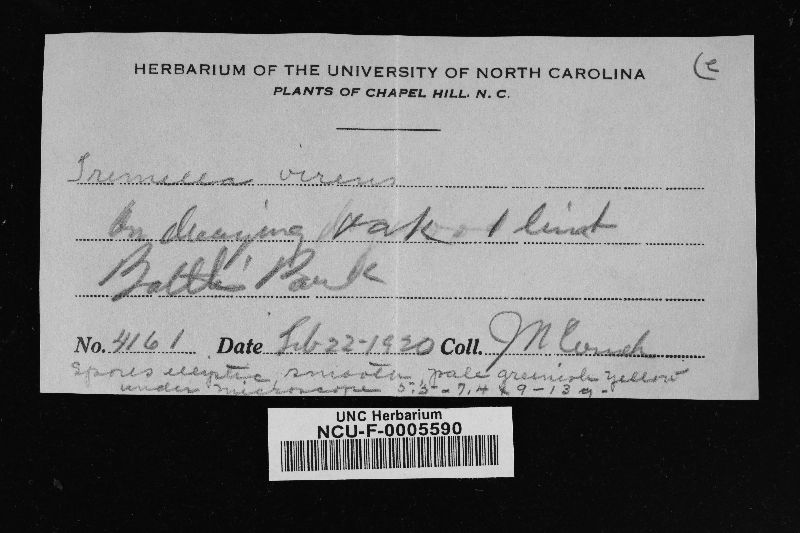 (e
HERBARIUM OF THE UNIVERSITY OF NORTH CAROLINA
PLANTS OF CHAPEL HILL. N. C.
Tremella virens
On decaying oak limb
Battle Park
No. 4161 Date Feb 22-1920 Coll. J N Couch
Spores elliptic smooth pale greenish yellow
under microscope 5.5-7.4 x 9-13 µ.
UNC Herbarium
NCU-F-0005590